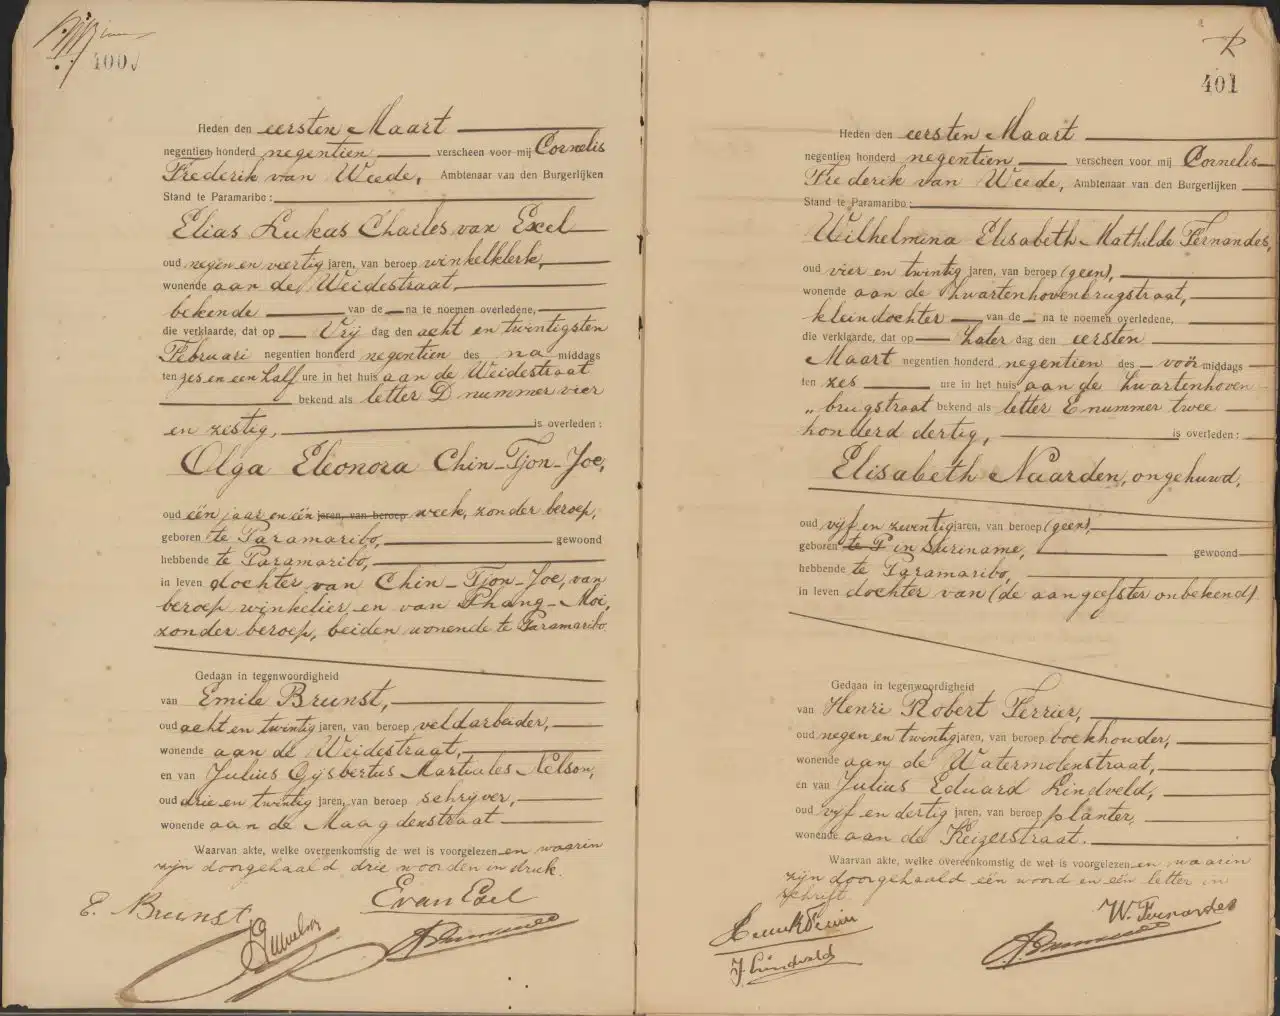 400
Heden den eersten Maart
negentien honderd negentien verscheen voor mij Cornelis
Frederik van Weede, Ambtenaar van den Burgerlijken
Stand te Paramaribo:
Elias Lukas Charles van Exel
oud negen en veertig jaren, van beroep winkelklerk,
wonende aan de Weidestraat,
bekende van de na te noemen overledene,
die verklaarde, dat op Vrij dag den acht en twintigsten
Februari negentien honderd negentien des na middags
ten zes en een half ure in het huis aan de Weidestraat
bekend als letter D nummer vier
en zestig, is overleden:
Olga Eleonora Chin-Tjon-Joe,
oud één jaar en één jaren, van beroep week, zonder beroep,
geboren te Paramaribo, gewoond
hebbende te Paramaribo,
in leven dochter van Chin-Tjon-Joe, van
beroep winkelier, en van Phang-Moi,
zonder beroep, beiden wonende te Paramaribo.
Gedaan in tegenwoordigheid
van Emile Brunst,
oud acht en twintig jaren, van beroep veldarbeider,
wonende aan de Weidestraat,
en van Julius Gijsbertus Martiales Nelson,
oud drie en twintig jaren, van beroep schrijver,
wonende aan de Maagdenstraat
Waarvan akte, welke overeenkomstig de wet is voorgelezen en waarin
zijn doorgehaald drie woorden in druk.
E van Exel
E. Brunst
401
Heden den eersten Maart
negentien honderd negentien verscheen voor mij Cornelis
Frederik van Weede, Ambtenaar van den Burgerlijken
Stand te Paramaribo:
Wilhelmina Elisabeth Mathilde Fernandes,
oud vier en twintig jaren, van beroep (geen),
wonende aan de Zwartenhovenbrugstraat,
kleindochter van de na te noemen overledene,
die verklaarde, dat op Zater dag den eersten
Maart negentien honderd negentien des voor middags
ten zes ure in het huis aan de Zwartenhoven-
„ brugstraat bekend als letter E nummer twee
honderd dertig, is overleden:
Elisabeth Naarden, ongehuwd,
oud vijf en zeventig jaren, van beroep (geen),
geboren te P in Suriname, gewoond
hebbende te Paramaribo,
in leven dochter van (de aangeefster onbekend)
Gedaan in tegenwoordigheid
van Henri Robert Ferrier,
oud negen en twintig jaren, van beroep boekhouder,
wonende aan de Watermolenstraat,
en van Julius Eduard Lindveld,
oud vijf en dertig jaren, van beroep planter,
wonende aan de Keizerstraat.
Waarvan akte, welke overeenkomstig de wet is voorgelezen en waarin
zijn doorgehaald één woord en één letter in
schrift.
W. Fernandes
J. Lindveld